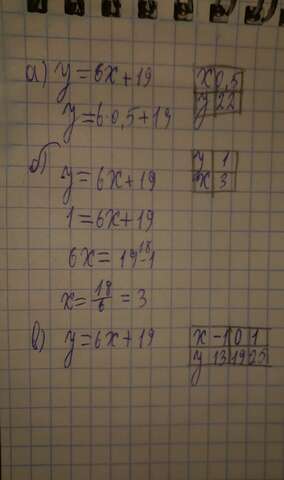 а) y = 6x + 19
x 0,5
y 22
y = 6 · 0,5 + 19
б)
y = 6x + 19
y 1
x 3
1 = 6x + 19
18
6x = 19 - 1
x = 18/6 = 3
в) y = 6x + 19
x -1 0 1
y 13 19 25